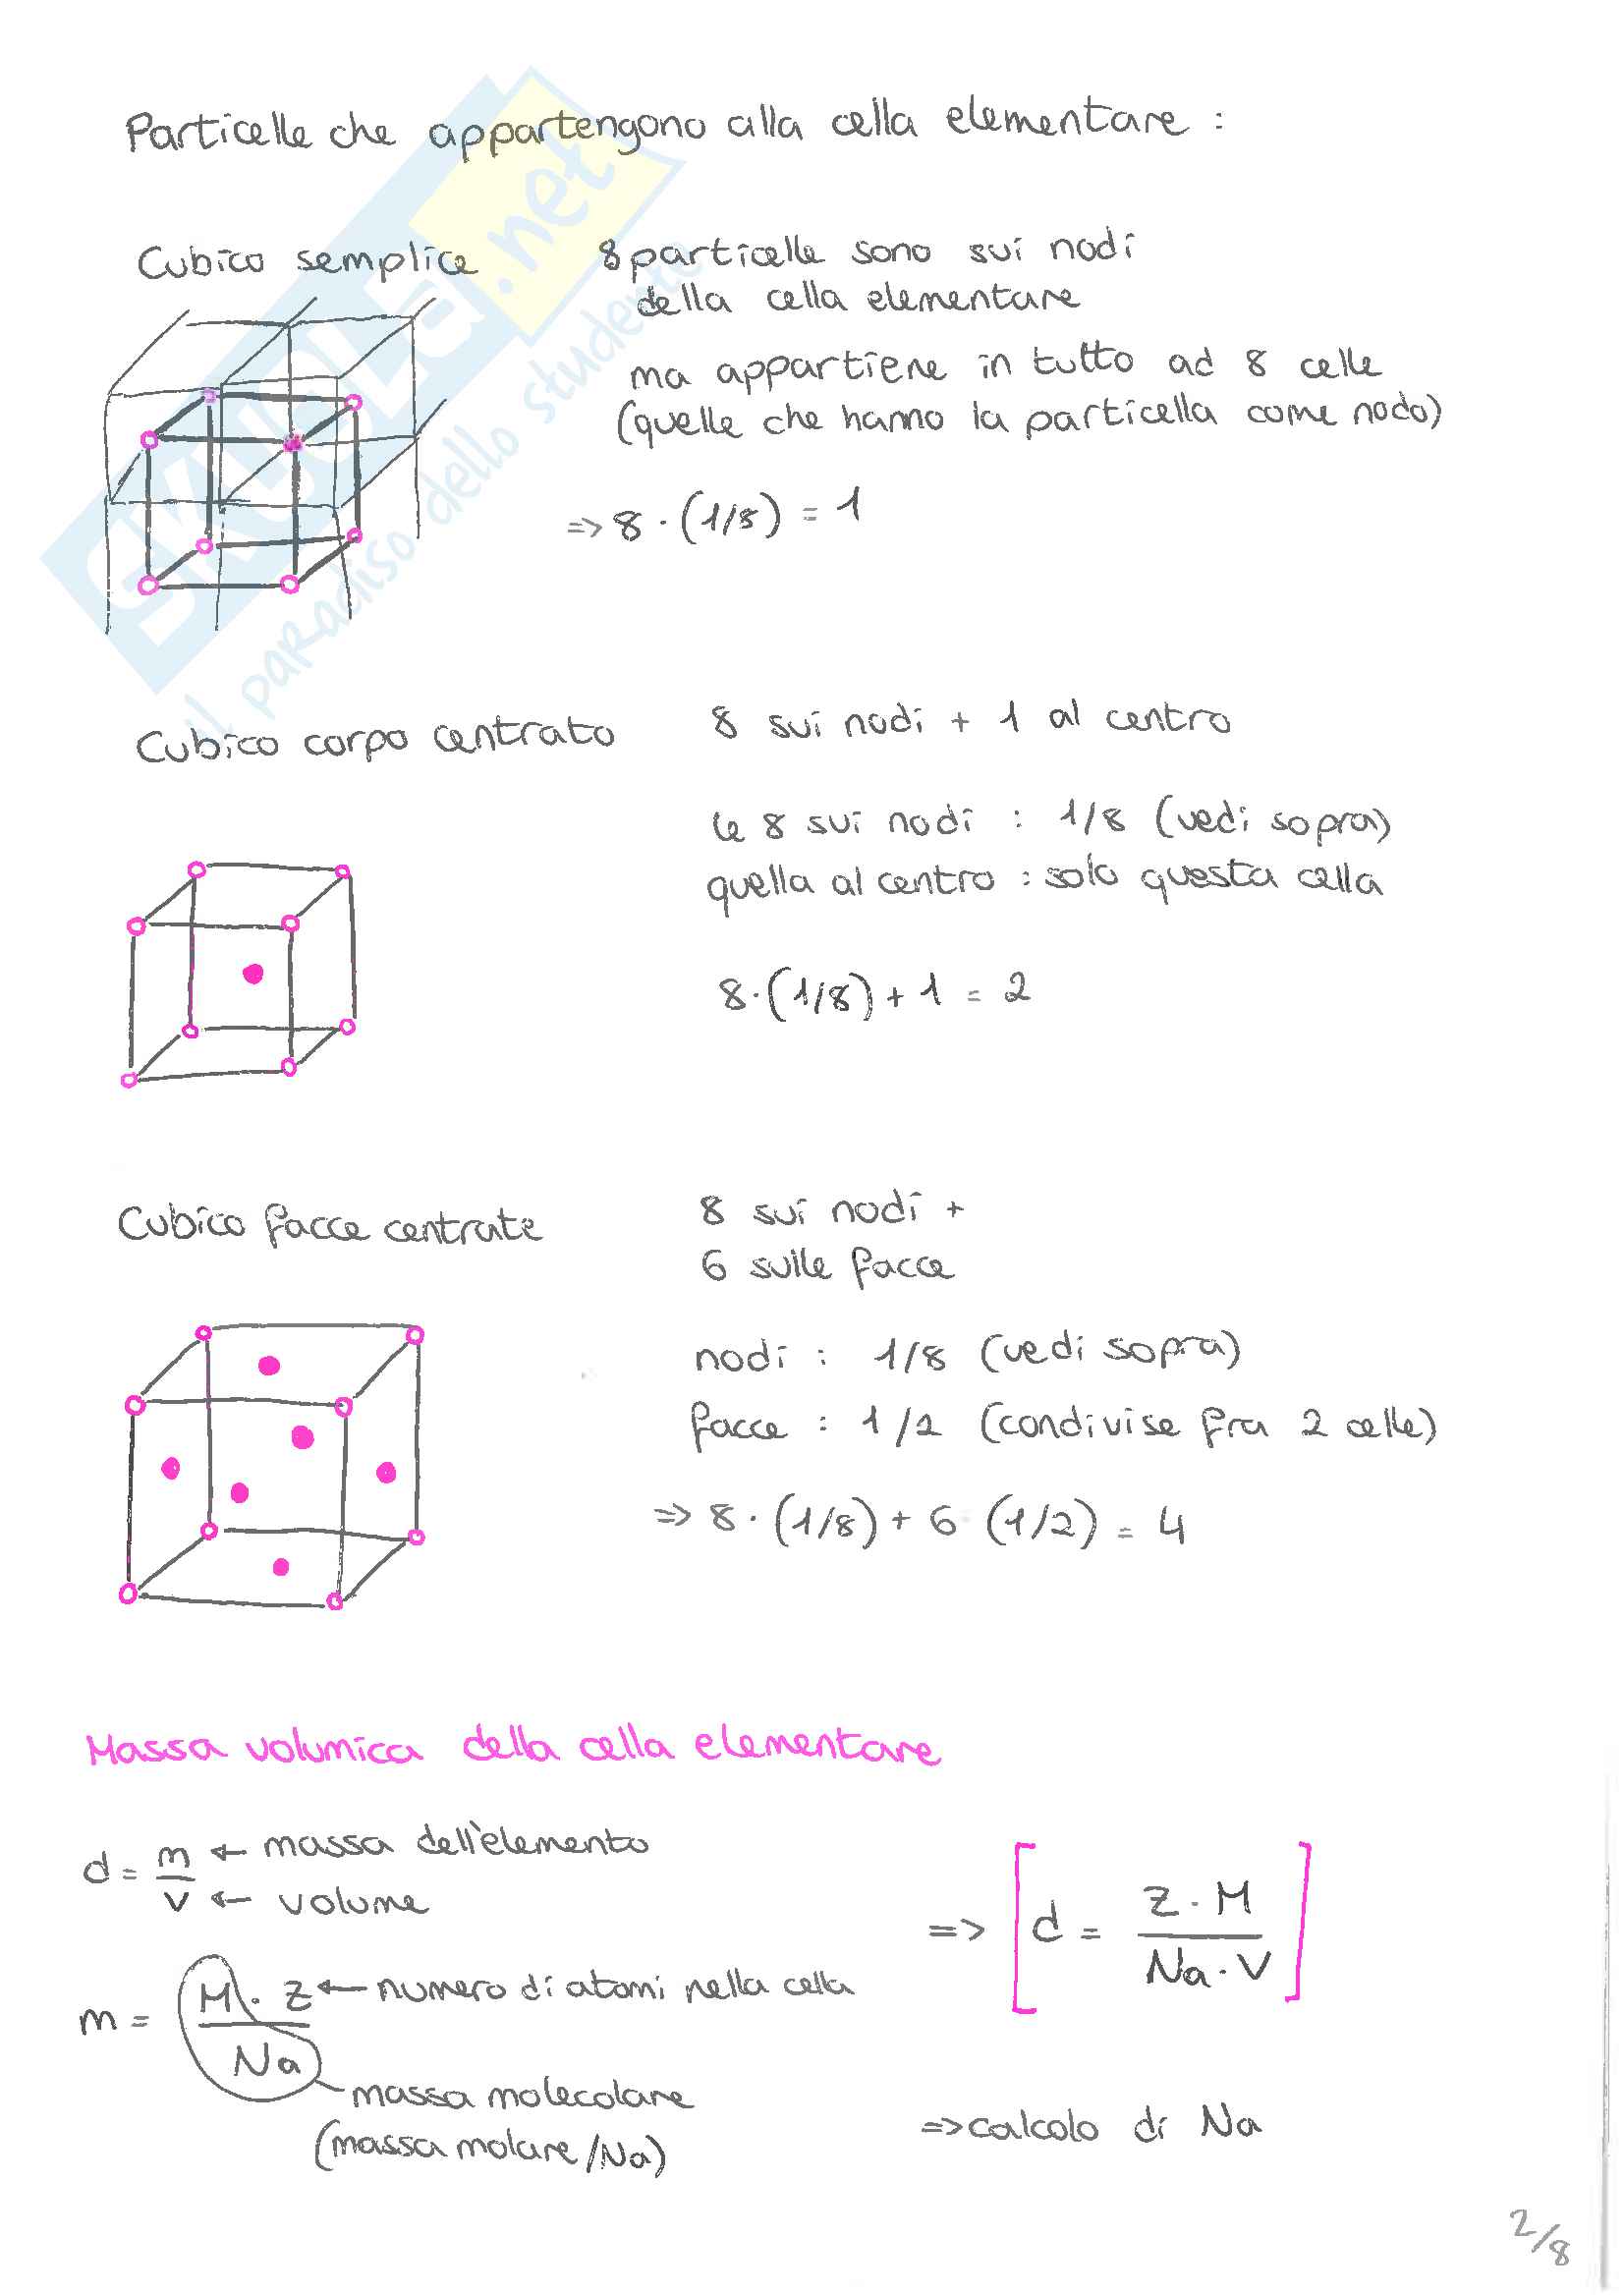 Particelle che appartengono alla cella elementare :
SKUOLA.net
il paradiso dello studente
Cubico semplice
8 particelle sono sui nodi
della cella elementare
ma appartiene in tutto ad 8 celle
(quelle che hanno la particella come nodo)
=> 8 · (1/8) = 1
Cubico corpo centrato
8 sui nodi + 1 al centro
le 8 sui nodi : 1/8 (vedi sopra)
quella al centro : solo questa cella
8·(1/8) + 1 = 2
Cubico facce centrate
8 sui nodi +
6 sulle facce
nodi : 1/8 (vedi sopra)
facce : 1/2 (condivise fra 2 celle)
=> 8 · (1/8) + 6 · (1/2) = 4
Massa volumica della cella elementare
d = m/V ← massa dell'elemento
← volume
=> [d = Z · M / Na · V]
m = M · Z / Na ← numero di atomi nella cella
massa molecolare
(massa molare/Na)
=> calcolo di Na
2/8